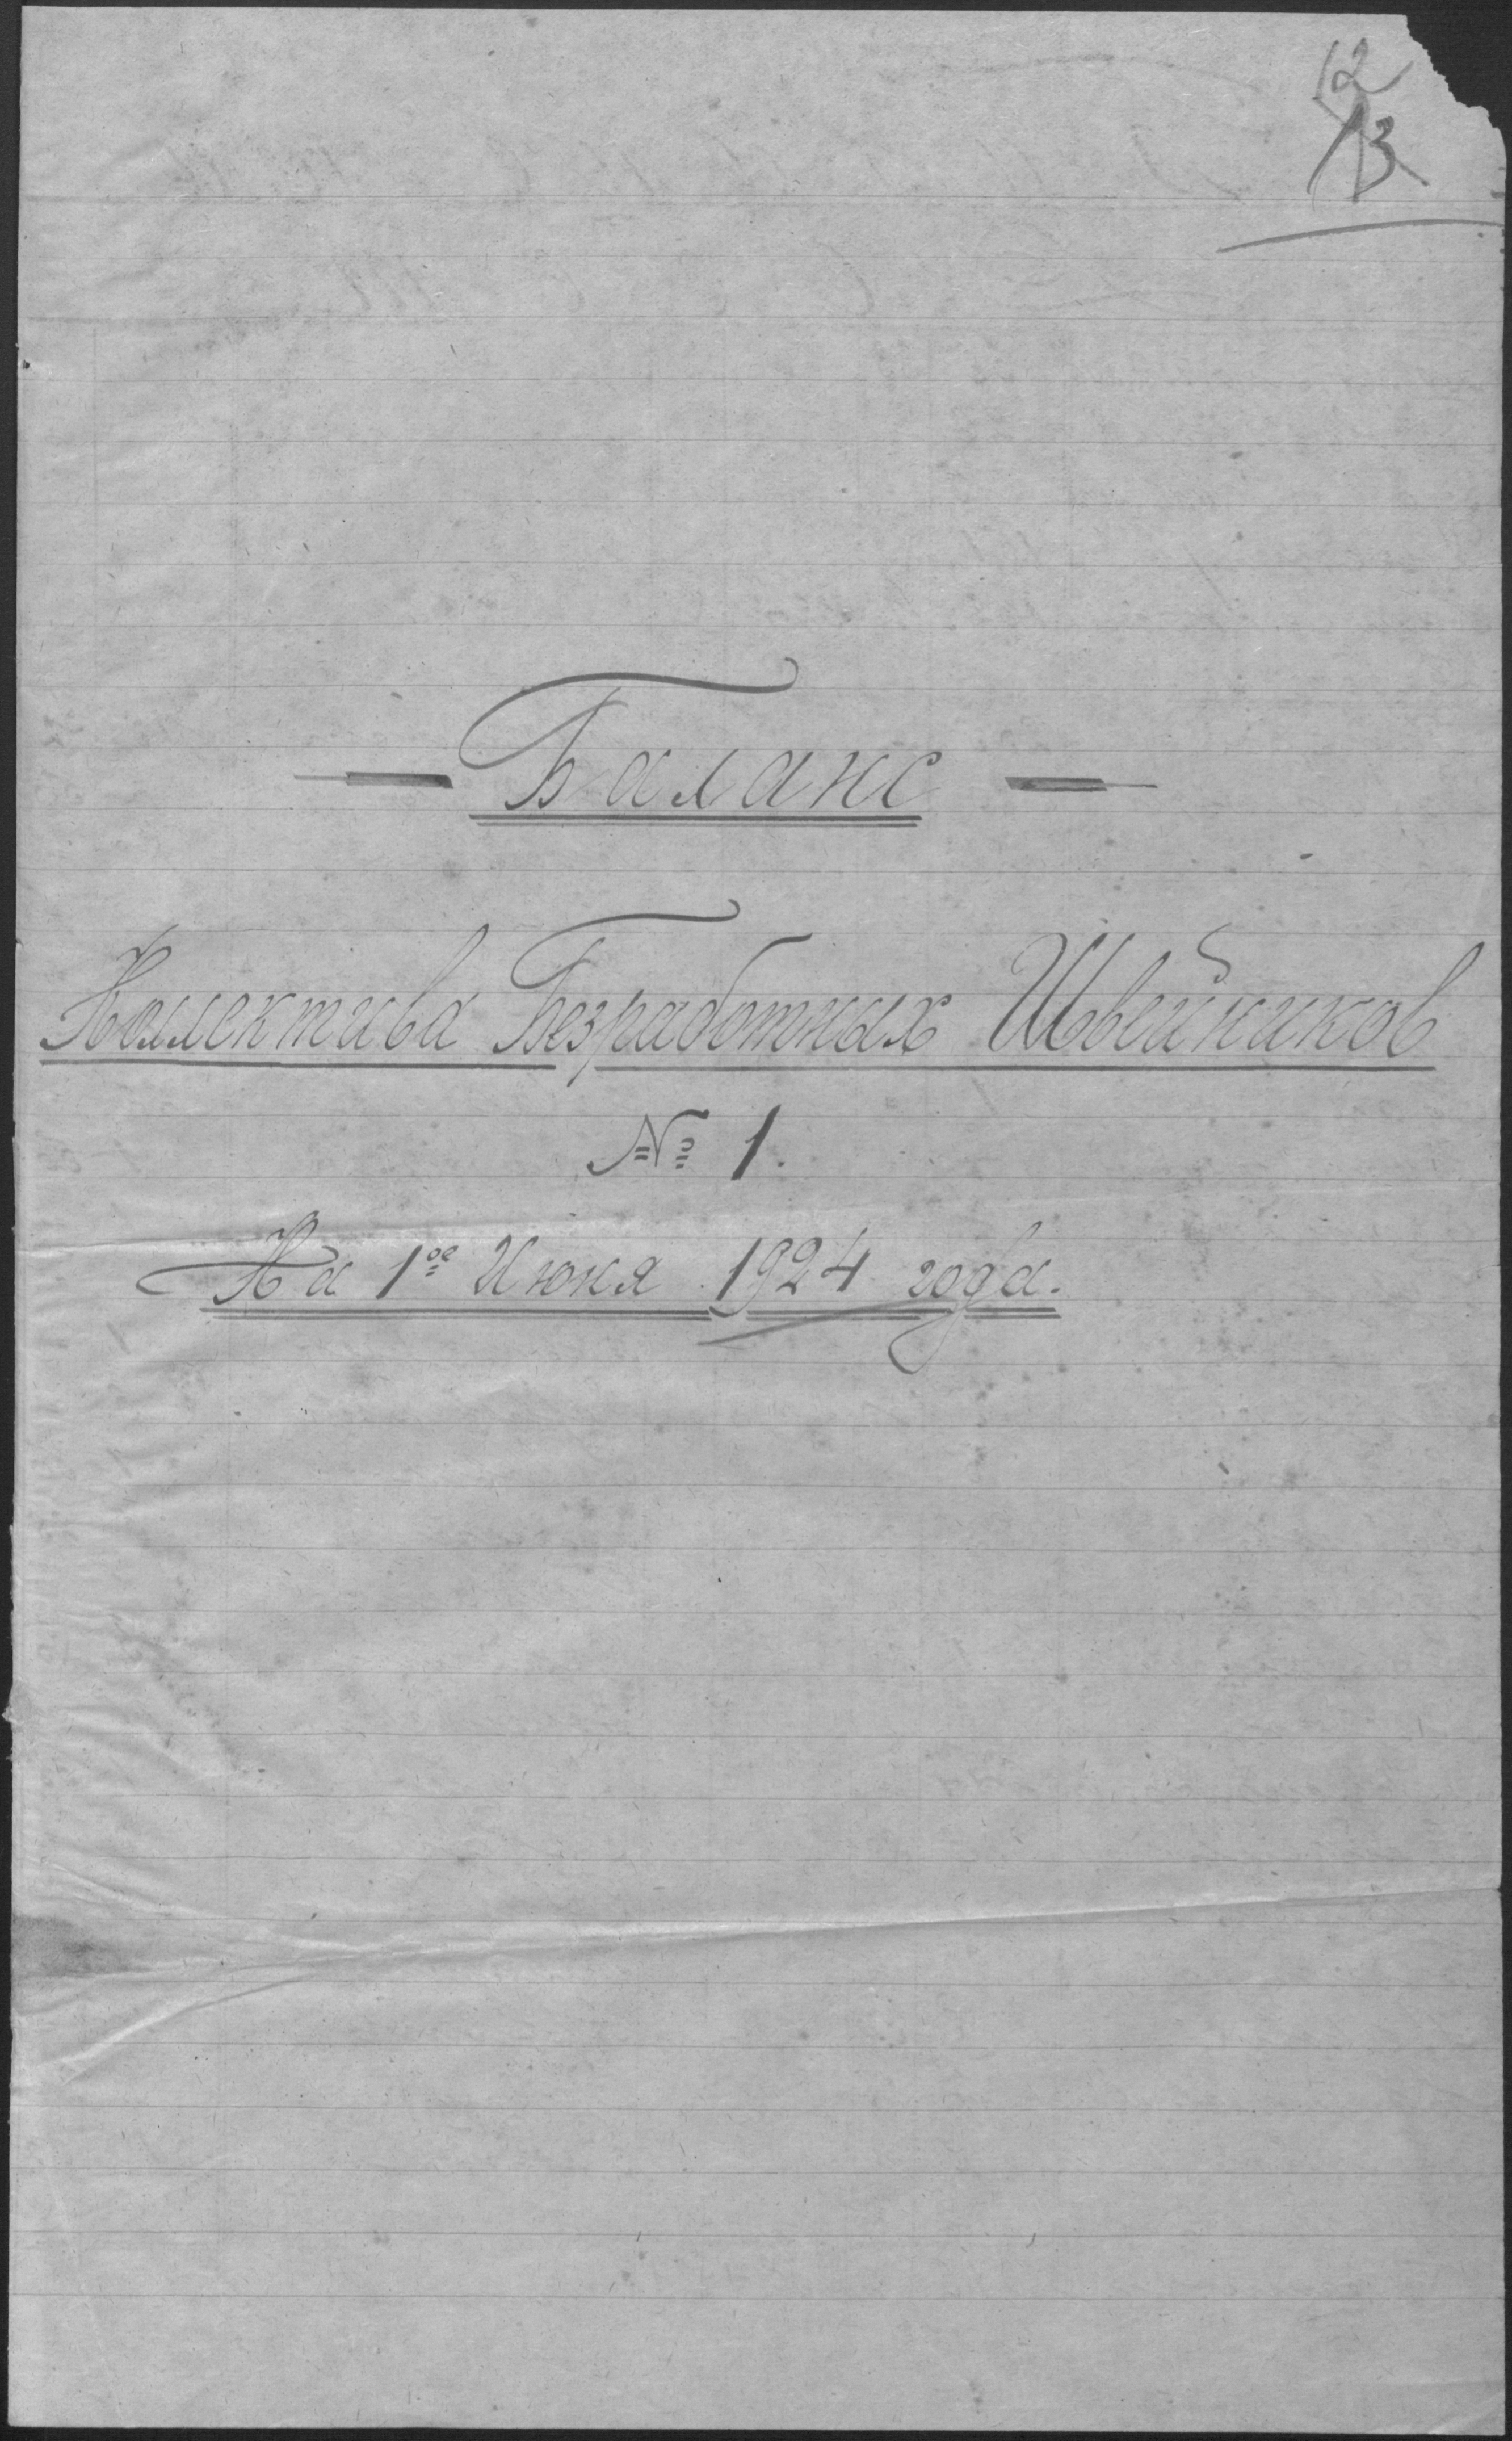 12
13
— Баланс —
Коллектива Безработных Швейников
№ 1.
На 1ое Июня 1924 года.